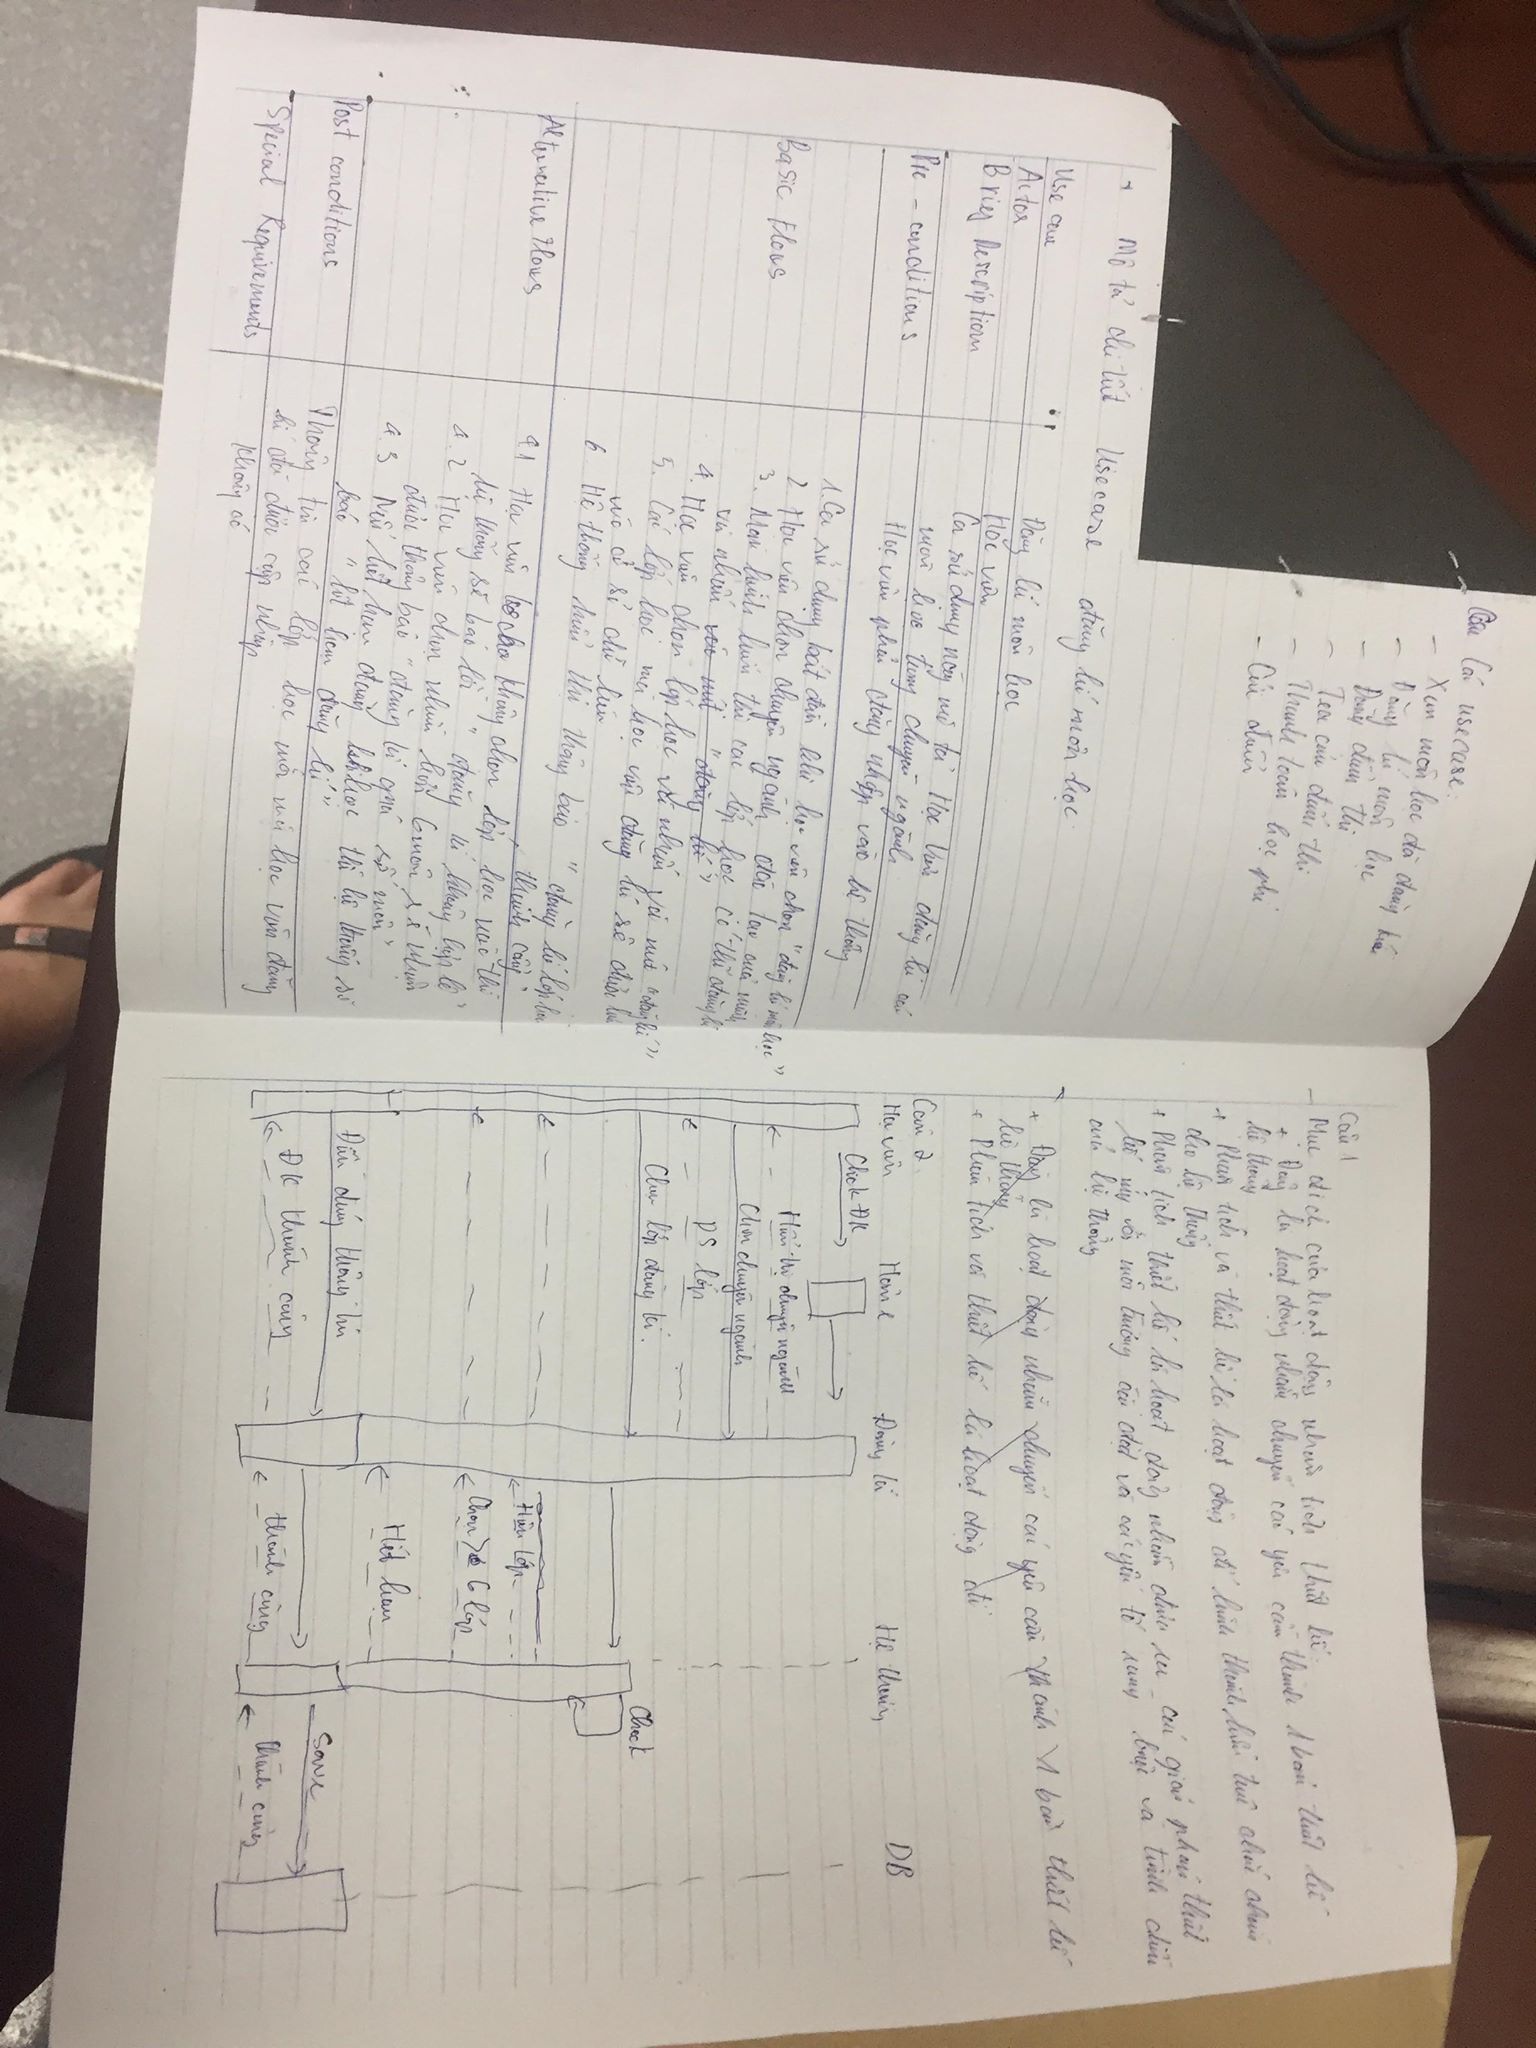 Các usecase:
- Xem môn học đã đăng kí
- Đăng kí môn học
- Đăng điểm thi
- Tra cứu điểm thi
- Thanh toán học phí
- Cửa điểm
+ Mô tả chi tiết Usecase đăng kí môn học:
Use case
Đăng kí môn học
Actor
Học viên
Brief Description
Ca sử dụng này mô tả Học Viên đăng kí các
môn học trong chuyên ngành
Pre-conditions
Học viên phải đăng nhập vào hệ thống
Basic Flows
1. Ca sử dụng bắt đầu khi học viên chọn "đăng kí môn học"
2. Học viên chọn chuyên ngành đào tạo của mình
3. Màn hình hiển thị các lớp học có thể đăng kí
và nhấn vào nút "đăng kí"
4. Học viên chọn lớp học và nhấn vài nút "đăng kí"
5. Các lớp học mà học viên đăng kí sẽ được lưu
vào cơ sở dữ liệu
6. Hệ thống hiển thị thông báo "đăng kí lớp học
thành công"
Alternative Flows
4.1 Học viên không chọn lớp học nào thì
hệ thống sẽ báo lỗi "đăng kí không hợp lệ"
4.2 Học viên chọn nhiều hơn 6 môn sẽ nhận
được thông báo "đăng kí quá số môn"
4.3 Nếu hết hạn đăng kí học thì hệ thống sẽ
báo "hết hạn đăng kí"
Post conditions
Thông tin các lớp học mới mà học viên đăng
kí đã được cập nhập
Special Requirements
Không có
Câu 1
- Mục đích của hoạt động phân tích thiết kế:
+ Đây là hoạt động nhằm chuyển các yêu cầu thành 1 bản thiết kế
hệ thống
+ Phân tích và thiết kế là hoạt động để hình thành kiến trúc chắc chắn
cho hệ thống
+ Phân tích thiết kế là hoạt động nhằm đưa ra các giải pháp thiết
kế với môi trường cài đặt và các yếu tố ràng buộc và
của hệ thống
+ Đây là hoạt động nhằm chuyển các yêu cầu thành 1 bản thiết kế
hệ thống
+ Phân tích và thiết kế là hoạt động để
Câu 2
Học viên Home Đăng kí Hệ thống DB
Click ĐK
Hiển thị chuyên ngành
Chọn chuyên ngành
DS lớp
Chọn lớp đăng kí.
Check
lớp
Chọn > 6 lớp
Hết hạn
Điền đúng thông tin
Save
ĐK thành công
thành công
thành công